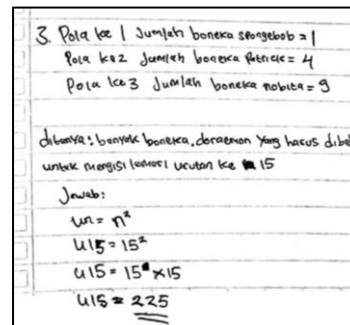 3. Pola ke 1 Jumlah boneka spongebob = 1
Pola ke 2 Jumlah boneka Patrick = 4
Pola ke 3 Jumlah boneka nobita = 9
ditanya : banyak boneka, doraemon yang harus dibel
untuk mengisi lemari urutan ke 15
Jawab:
un = n²
U15 = 15²
U15 = 15 × 15
U15 = 225